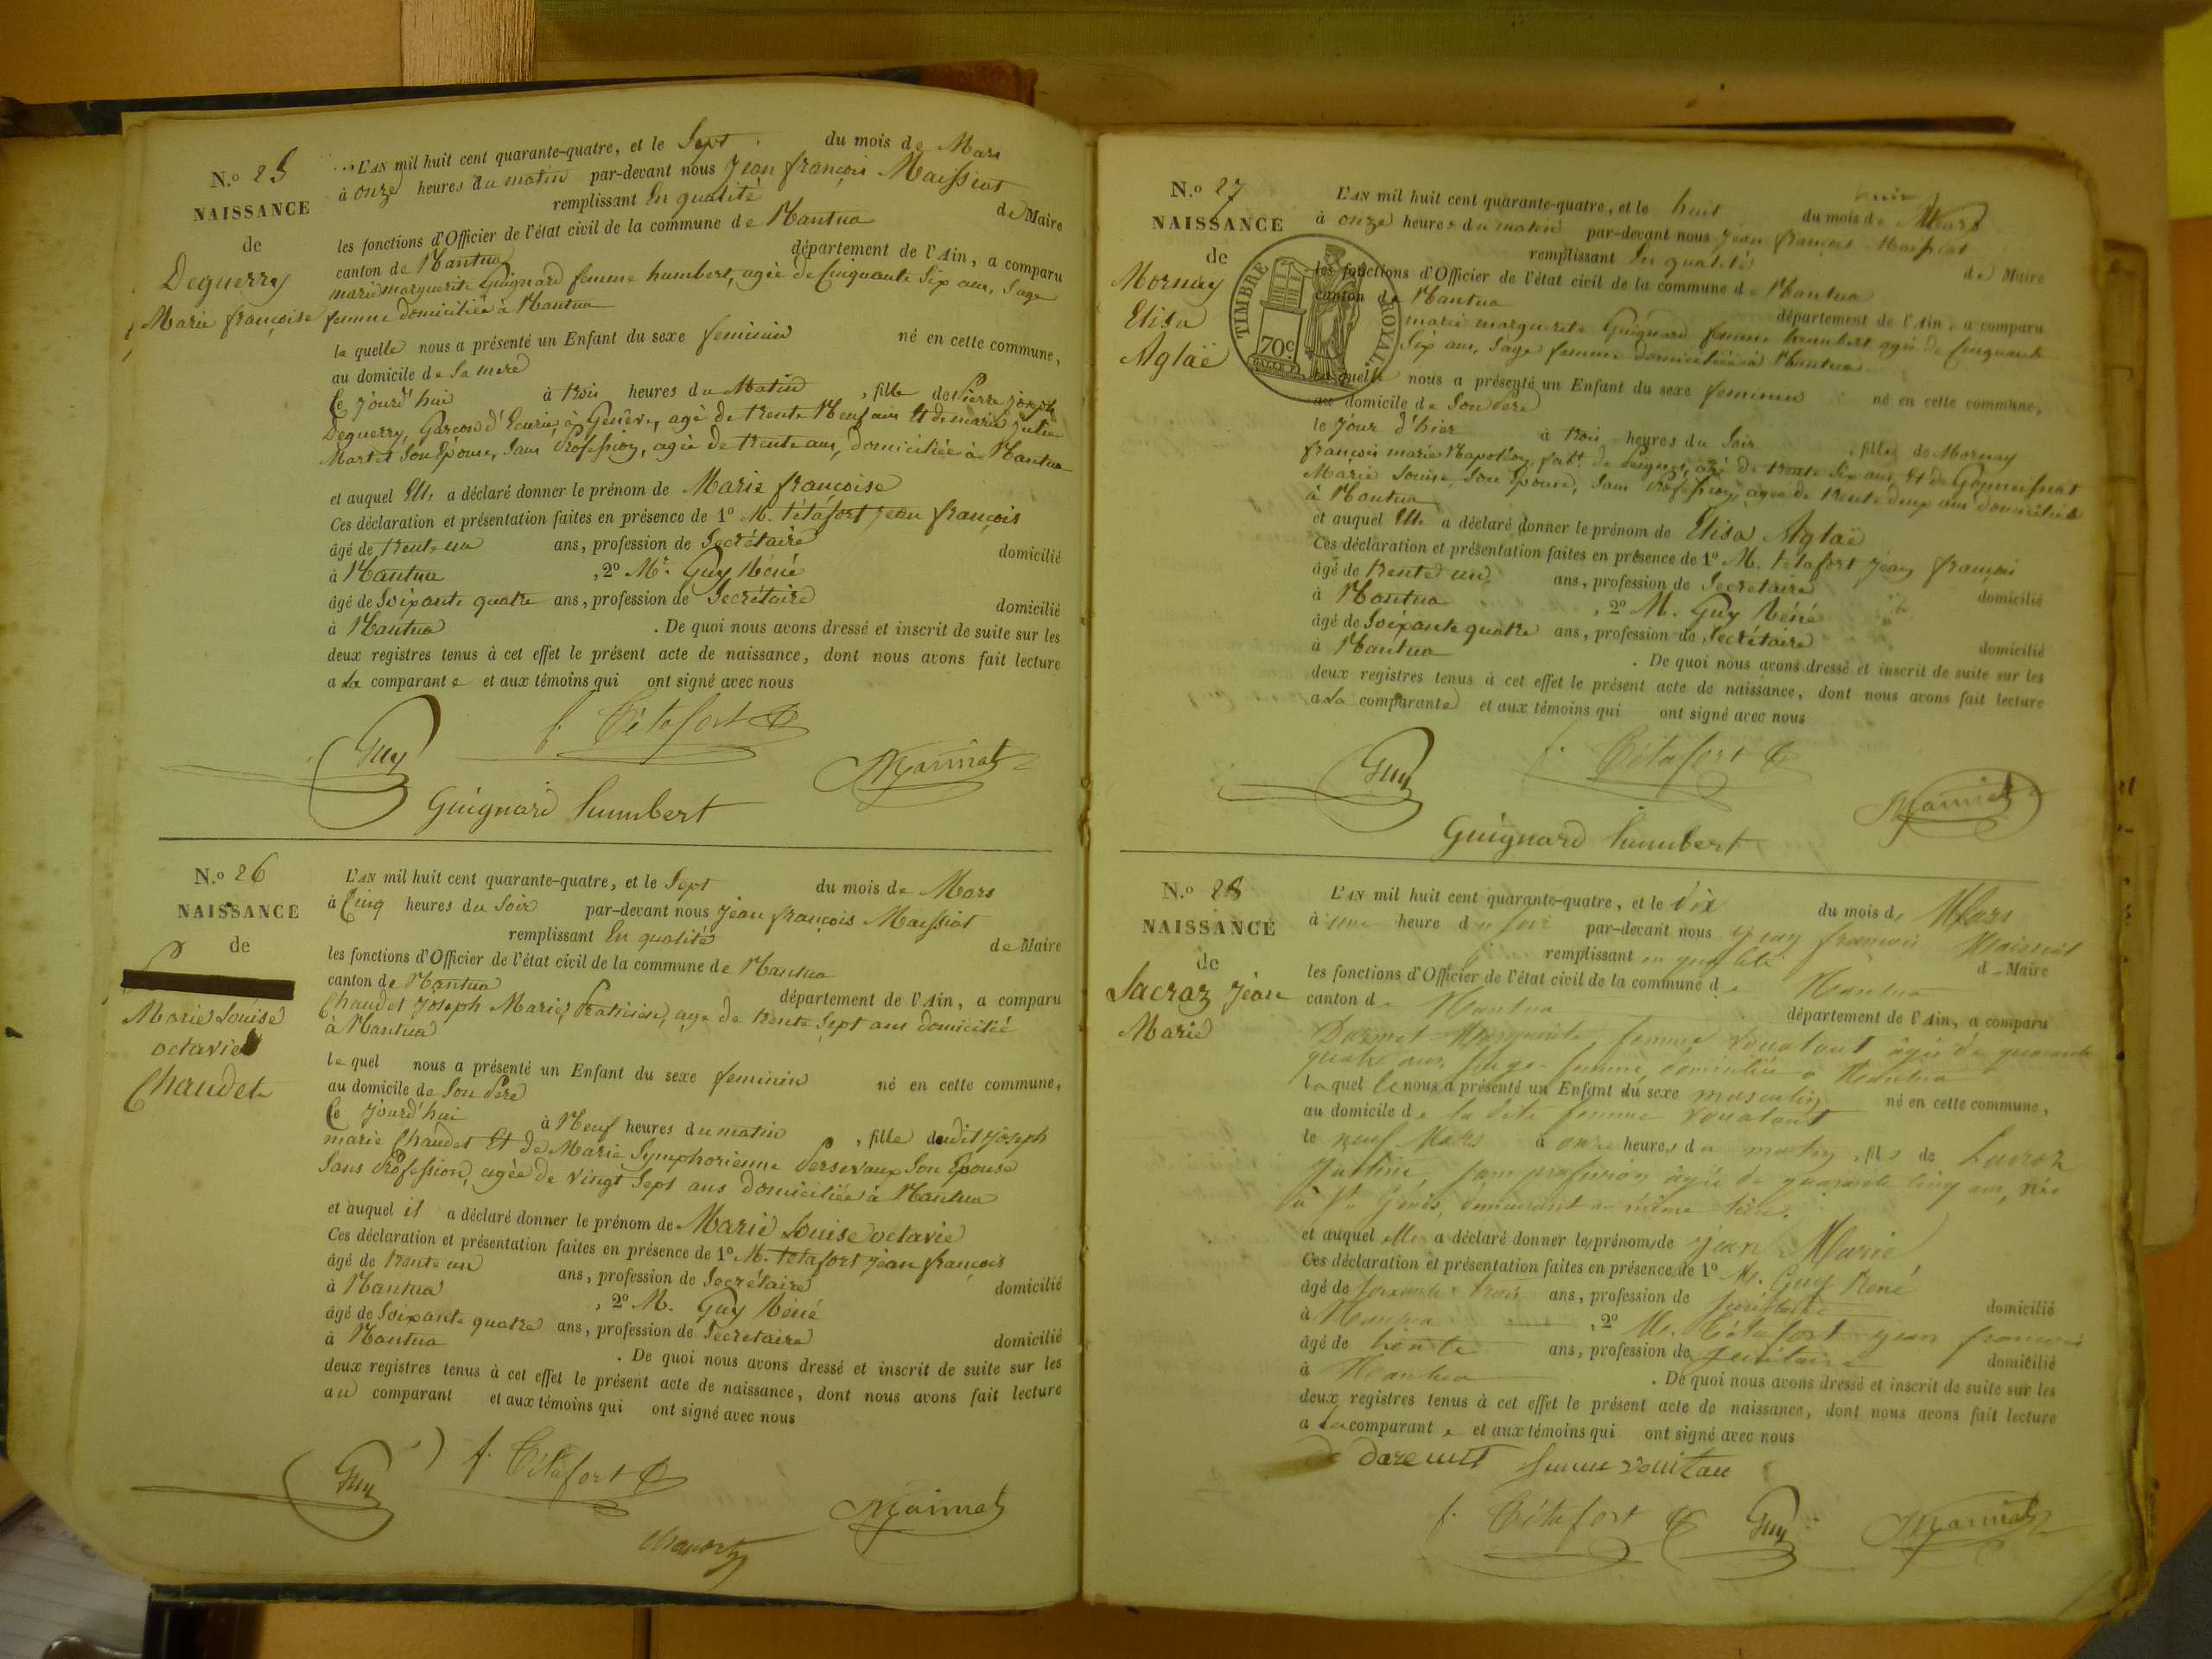 N.o 25
NAISSANCE
de
Deguerry
Marie françoise
L'AN mil huit cent quarante-quatre, et le Sept du mois de Mars
à onze heures du matin par-devant nous Jean françois Maissiat
remplissant En qualité de Maire
les fonctions d'Officier de l'état civil de la commune de Nantua
canton de Nantua département de l'Ain, a comparu
marie marguerite Guignard femme humbert, agée de Cinquante Six ans, Sage
femme domiciliée à Nantua
la quelle nous a présenté un Enfant du sexe feminin né en cette commune,
au domicile de Sa mere
Ce jourd'hui à trois heures du Matin, fille de Pierre joseph
Deguerry, Garcon d'Ecurie, à Genève, agé de trente Neuf ans Et de marie julie
Martet Son Epouse, Sans Profession, agée de trente ans, domiciliée à Nantua
et auquel Elle a déclaré donner le prénom de Marie françoise
Ces déclaration et présentation faites en présence de 1o M. tétafort jean françois
âgé de trente un ans, profession de Secrétaire domicilié
à Nantua, 2o Mr. Guy Réné
âgé de Soixante quatre ans, profession de Secrétaire domicilié
à Nantua. De quoi nous avons dressé et inscrit de suite sur les
deux registres tenus à cet effet le présent acte de naissance, dont nous avons fait lecture
a La comparante et aux témoins qui ont signé avec nous
Guy f. Tétafort Maissiat
Guignard humbert
N.o 26
NAISSANCE
de
Marie Louise
octavie
Chaudet
L'AN mil huit cent quarante-quatre, et le Sept du mois de Mars
à Cinq heures du Soir par-devant nous jean françois Maissiat
remplissant En qualité de Maire
les fonctions d'Officier de l'état civil de la commune de Nantua
canton de Nantua département de l'Ain, a comparu
Chaudet Joseph Marie, Praticien, age de trente Sept ans domicilié
à Nantua
le quel nous a présenté un Enfant du sexe feminin né en cette commune,
au domicile de Son Pere
Ce jourd'hui à Neuf heures du matin, fille dudit joseph
marie Chaudet Et de Marie Symphorienne Persevaux Son Epouse
Sans Profession, agée de vingt Sept ans domiciliée à Nantua
et auquel il a déclaré donner le prénom de Marie Louise octavie
Ces déclaration et présentation faites en présence de 1o M. tetafort jean françois
âgé de trente un ans, profession de Secrétaire domicilié
à Nantua, 2o M. Guy Réné
âgé de Soixante quatre ans, profession de Secretaire domicilié
à Nantua. De quoi nous avons dressé et inscrit de suite sur les
deux registres tenus à cet effet le présent acte de naissance, dont nous avons fait lecture
au comparant et aux témoins qui ont signé avec nous
Guy f. Tétafort Maissiat
N.o 27
NAISSANCE
de
Mornay
Elisa
Aglaë
TIMBRE ROYAL
70c
L'AN mil huit cent quarante-quatre, et le huit du mois de Mars
à onze heures du matin par-devant nous jean françois Maissiat
remplissant En qualité de Maire
les fonctions d'Officier de l'état civil de la commune de Nantua
canton de Nantua département de l'Ain, a comparu
marie marguerite Guignard femme humbert agée de Cinquante
Six ans, Sage femme domiciliée à Nantua
La quelle nous a présenté un Enfant du sexe feminin né en cette commune,
au domicile de Son Pere
le jour d'hier à trois heures du Soir, fille de Mornay
françois marie Napoléon, fabt. de Peignes, agé de trente Six ans, Et de
Marie Louise, Son Epouse, Sans Profession, agée de trente deux ans domiciliés
à Nantua
et auquel Elle a déclaré donner le prénom de Elisa Aglaë
Ces déclaration et présentation faites en présence de 1o M. tétafort jean françois
âgé de trente un ans, profession de Secretaire domicilié
à Nantua, 2o M. Guy Réné
âgé de Soixante quatre ans, profession de Secrétaire domicilié
à Nantua. De quoi nous avons dressé et inscrit de suite sur les
deux registres tenus à cet effet le présent acte de naissance, dont nous avons fait lecture
a La comparante et aux témoins qui ont signé avec nous
Guy f. Tétafort Maissiat
Guignard humbert
N.o 28
NAISSANCE
de
Lacroz Jean
Marie
L'AN mil huit cent quarante-quatre, et le dix du mois de Mars
à une heure du soir par-devant nous jean françois Maissiat
remplissant en qualité de Maire
les fonctions d'Officier de l'état civil de la commune de Nantua
canton de Nantua département de l'Ain, a comparu
Marguerite femme âgée de quarante
quatre ans, sage-femme, domiciliée à Nantua
laquelle nous a présenté un Enfant du sexe masculin né en cette commune,
au domicile de la dite femme
le neuf Mars à onze heures du matin, fils de Lacroz
sans profession âgée de quarante cinq ans, née
à St. Genis, demeurant au même lieu.
et auquel elle a déclaré donner les prénoms de jean Marie
Ces déclaration et présentation faites en présence de 1o M. Guy René
âgé de soixante trois ans, profession de secrétaire domicilié
à Nantua, 2o M. Tétafort jean françois
âgé de trente ans, profession de secrétaire domicilié
à Nantua. De quoi nous avons dressé et inscrit de suite sur les
deux registres tenus à cet effet le présent acte de naissance, dont nous avons fait lecture
a La comparante et aux témoins qui ont signé avec nous
f. Tétafort Guy Maissiat